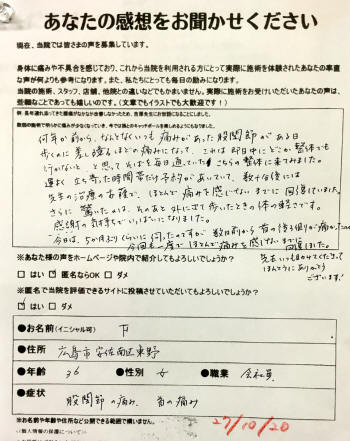 あなたの感想をお聞かせください
現在、当院では皆さまの声を募集しています。
身体に痛みや不具合を感じており、これから当院を利用される方にとって実際に施術を体験されたあなたの率直
な声が何よりも参考になります。また、私たちにとっても毎日の励みになります。
当院の施術、スタッフ、店舗、他院との違いなどでもかまいません。実際に施術をお受けいただいたあなたの声は、
些細なことであっても嬉しいのです。(文章でもイラストでも大歓迎です!)
何年か前から、なんとなくいつも痛みがあった股関節がある日
歩くのに差し障るほどの痛みになって、これは即日中にどこか整体でも
行かないと、と思ってそばを毎日通っていたこちらの整体に来てみました。
運よく立ち寄った時間帯だけ予約があいていて、数十分後には
先生の治療のお蔭で、ほとんど痛みを感じないまでに回復していました。
さらに驚いたのは、そのあと外に出て歩いたときの体の軽さです。
感謝の気持ちでいっぱいになりました。
今日は、5か月ぶりくらいに伺ったのですが数日前から首の後ろ側が痛かった
今回も一度でほとんど痛みを感じないまでに回復しました。
先生いつも助けてくださって
ほんとうにありがとう
ございます!
※あなた様の声をホームページや院内で紹介してもよろしいでしょうか?
□ はい ☑ 匿名ならOK □ ダメ
※匿名で当院を評価できるサイトに投稿させていただいてもよろしいでしょうか?
☑ はい □ ダメ
●お名前(イニシャル可) T
●住所 広島市安佐南区東野
●年齢 36 ●性別 女 ●職業 会社員
●症状 股関節の痛み、首の痛み
※お名前や年齢や住所など公開できる範囲で構いません。
27/10/20